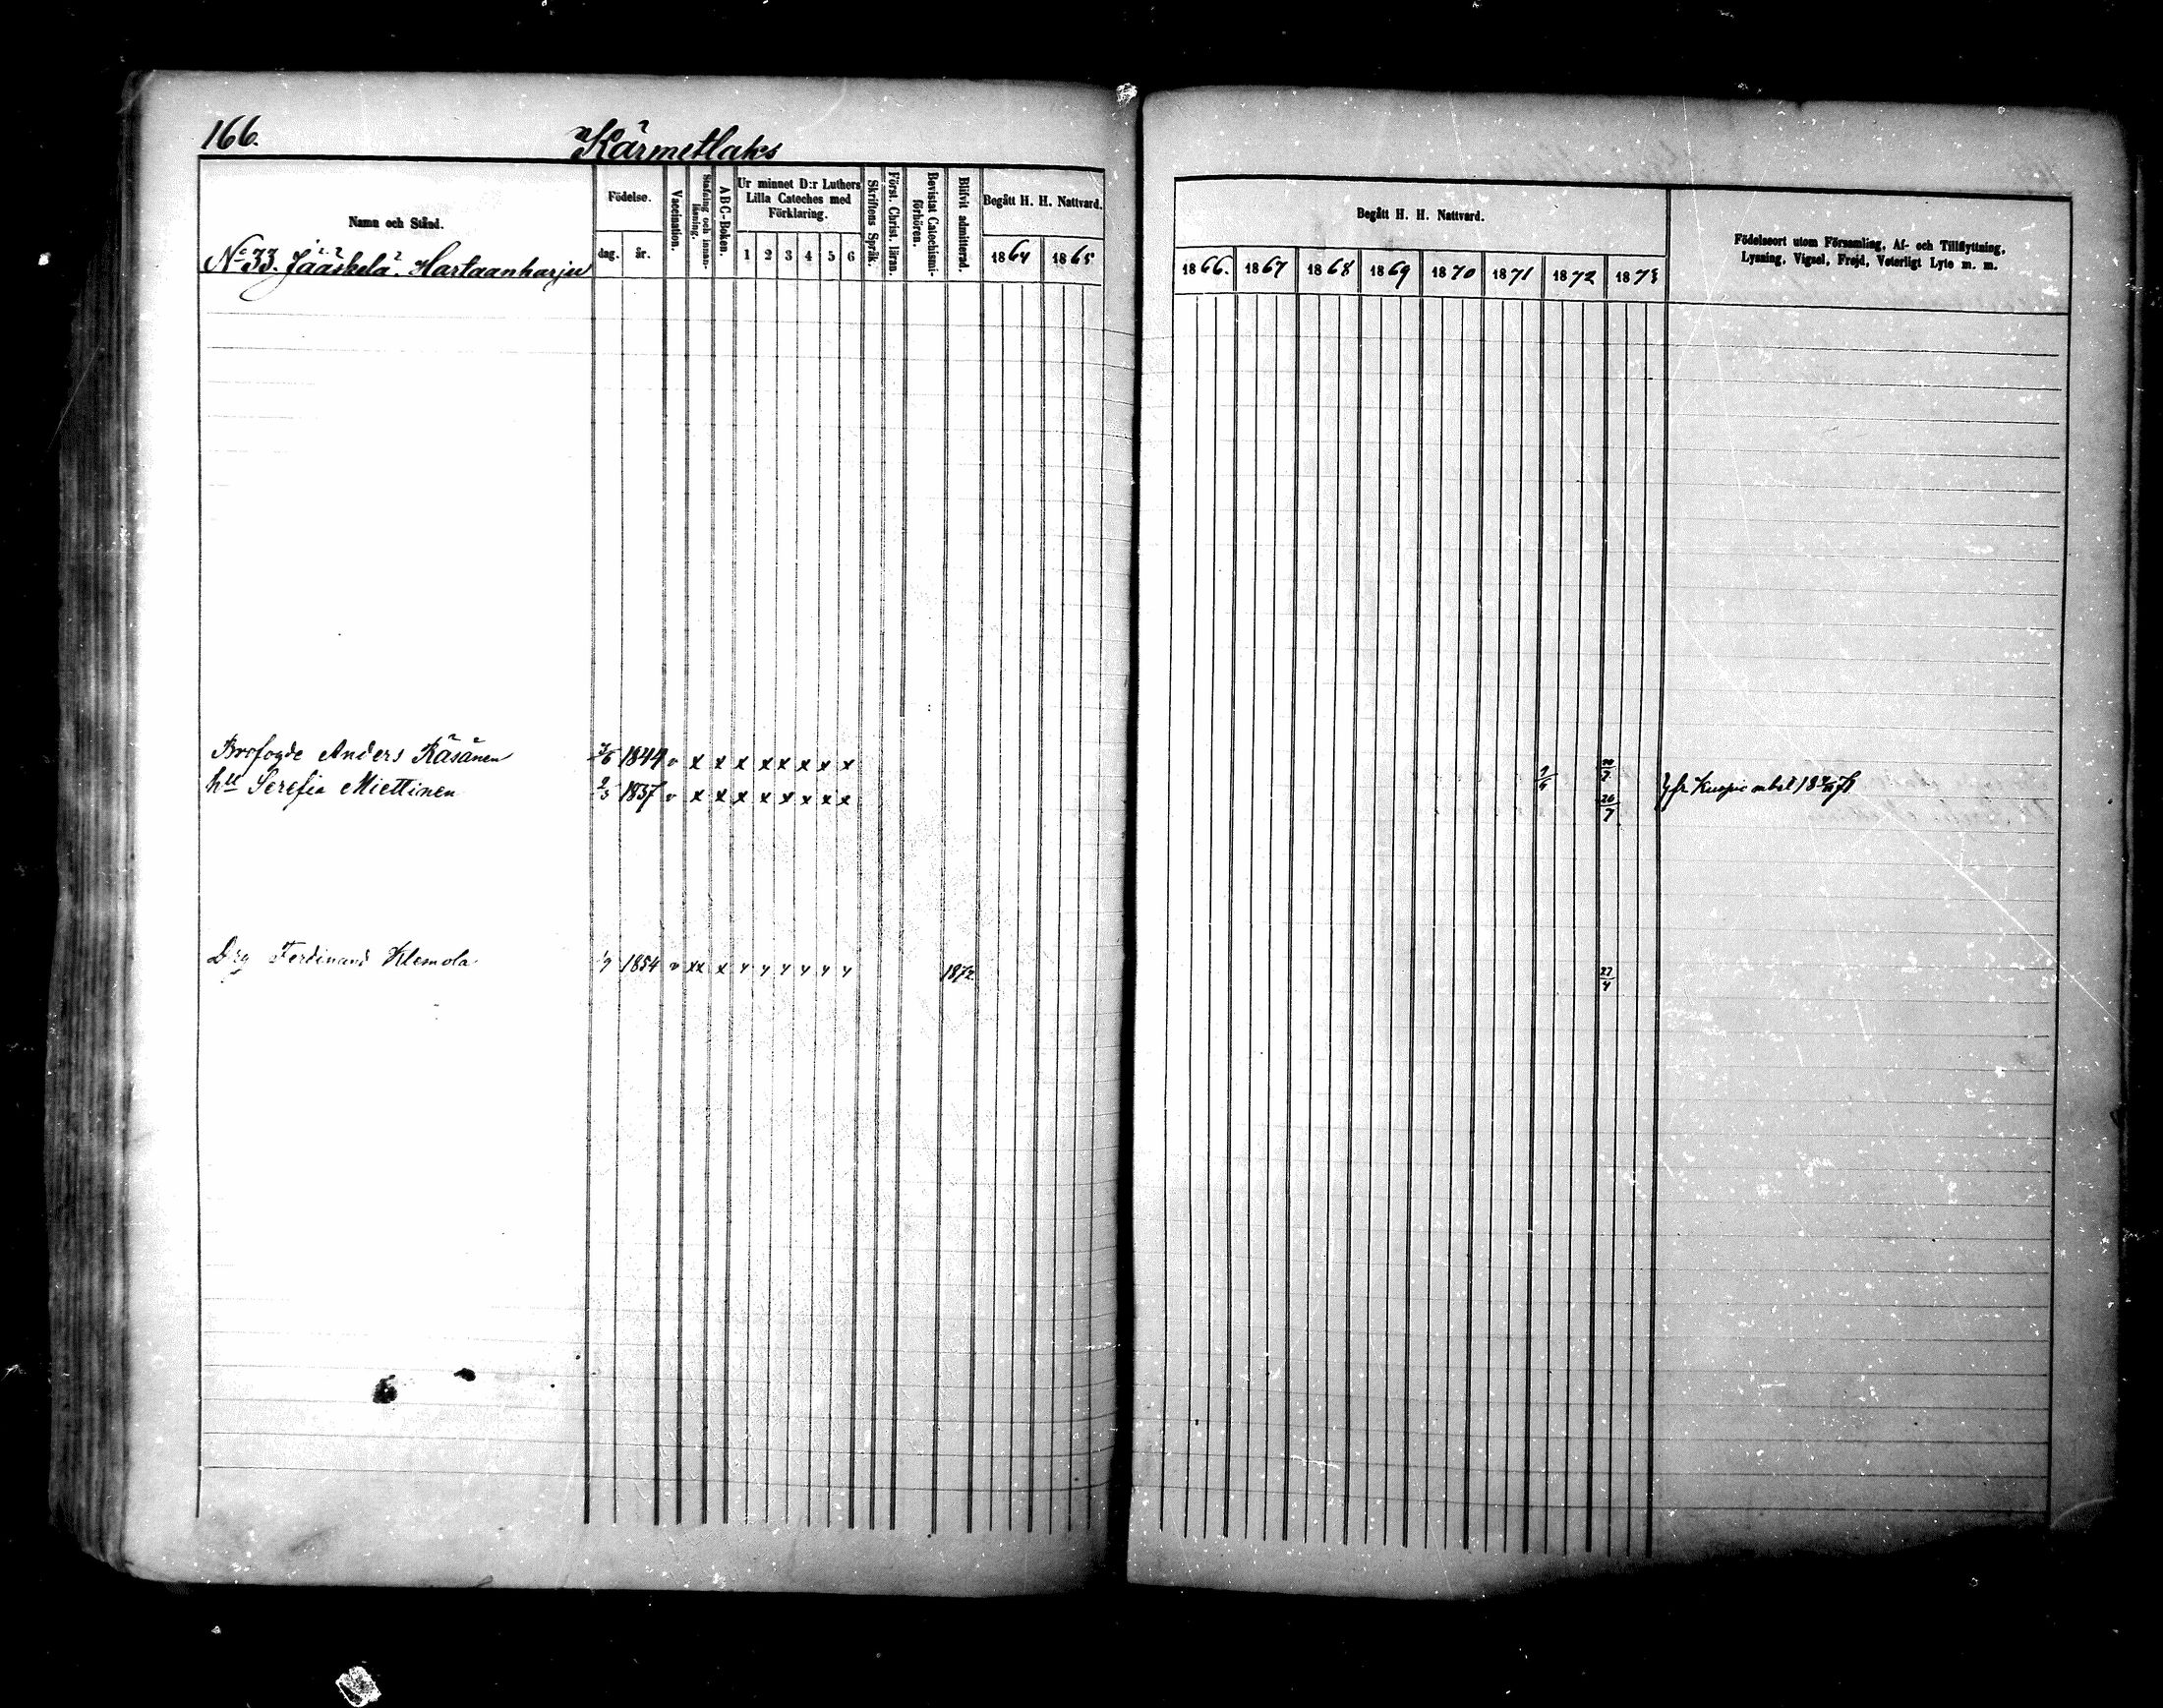 166.
Kärmetlaks
Namn och Stånd.
Födelse.
dag. år.
Vaccination.
Stafning och innanläsning.
ABC-Boken.
Ur minnet D:r Luthers
Lilla Cateches med
Förklaring.
1 2 3 4 5 6
Skriftens Språk.
Först. Christ. läran.
Bevistat Catechismi-
förhören.
Blifvit admitterad.
Begått H. H. Nattvard.
1864 1865
No 33. Jääskelä. Hartaanharju
Begått H. H. Nattvard.
1866. 1867 1868 1869 1870 1871 1872 1873
Födelseort utom Församling, Af- och Tillflyttning,
Lysning, Vigsel, Frejd, Veterligt Lyte m. m.
Brofogde Anders Räsänen 7/6 1844 v x x x x x x x x
hu Serefia Miettinen 2/3 1837 v x x x x x x x x 26/7
fr Kuopio
Drg Ferdinand Klemola 1854 v xx x 1872 27/4